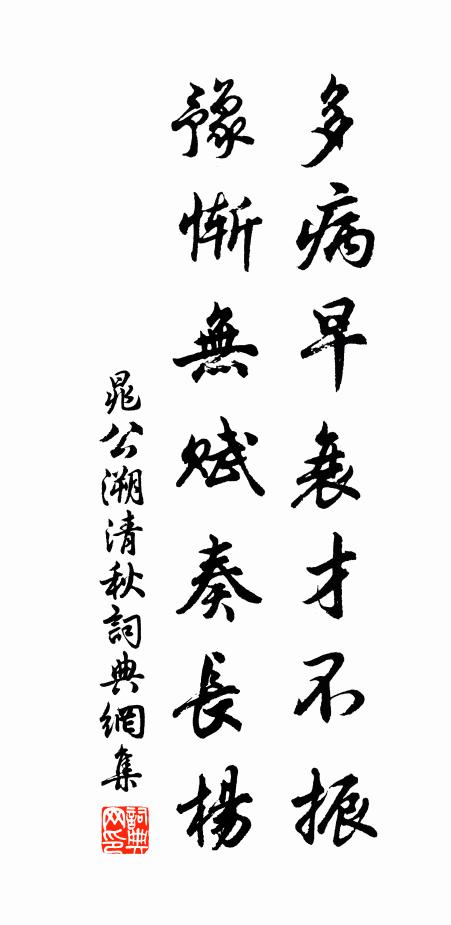 多病早衰才不振
豫慚無賦奏長楊
晁公溯清秋詞典網集
詞典網印